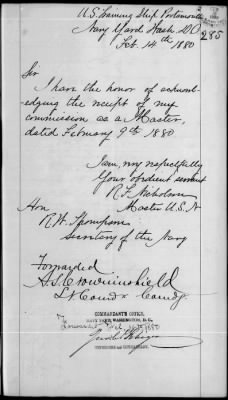 U.S. Training Ship Portsmouth
Navy Yard Wash. D.C.
Feb. 14th 1880
285
Sir
I have the honor of acknowl-
edging the receipt of my
commission as a Master,
dated February 9th 1880
I am, very respectfully
Your obedient servant
R. F. Nicholson
Master U.S.N
Hon
R. W. Thompson
Secretary of the Navy
Forwarded
A. S. Crowninshield
Lt Comd'r Comdg.
COMMANDANT'S OFFICE,
NAVY YARD, WASHINGTON, D. C.
Forwarded Feb. 1880
COMMODORE AND COMMANDANT.